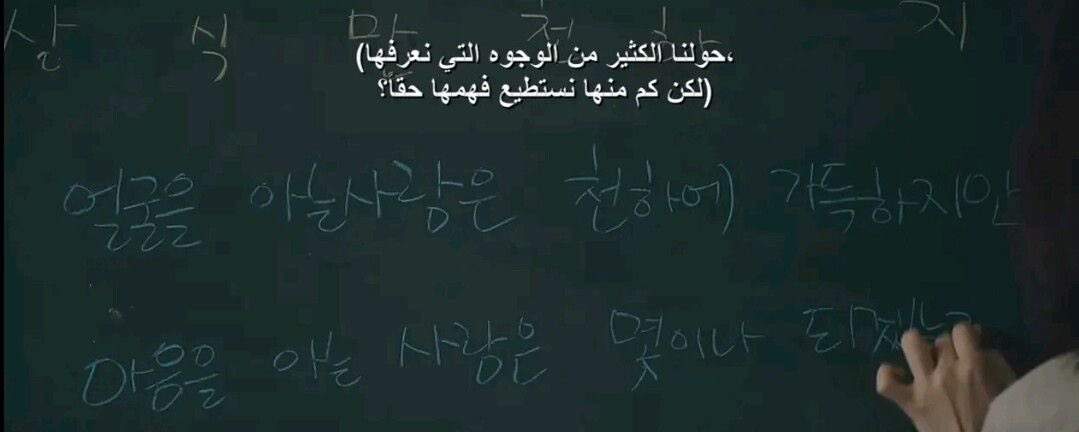 상 식 만 천 하 지
(حولنا الكثير من الوجوه التي نعرفها،
لكن كم منها نستطيع فهمها حقاً؟)
얼굴을 아는사람은 천하에 가득하지만
마음을 아는 사람은 몇이나